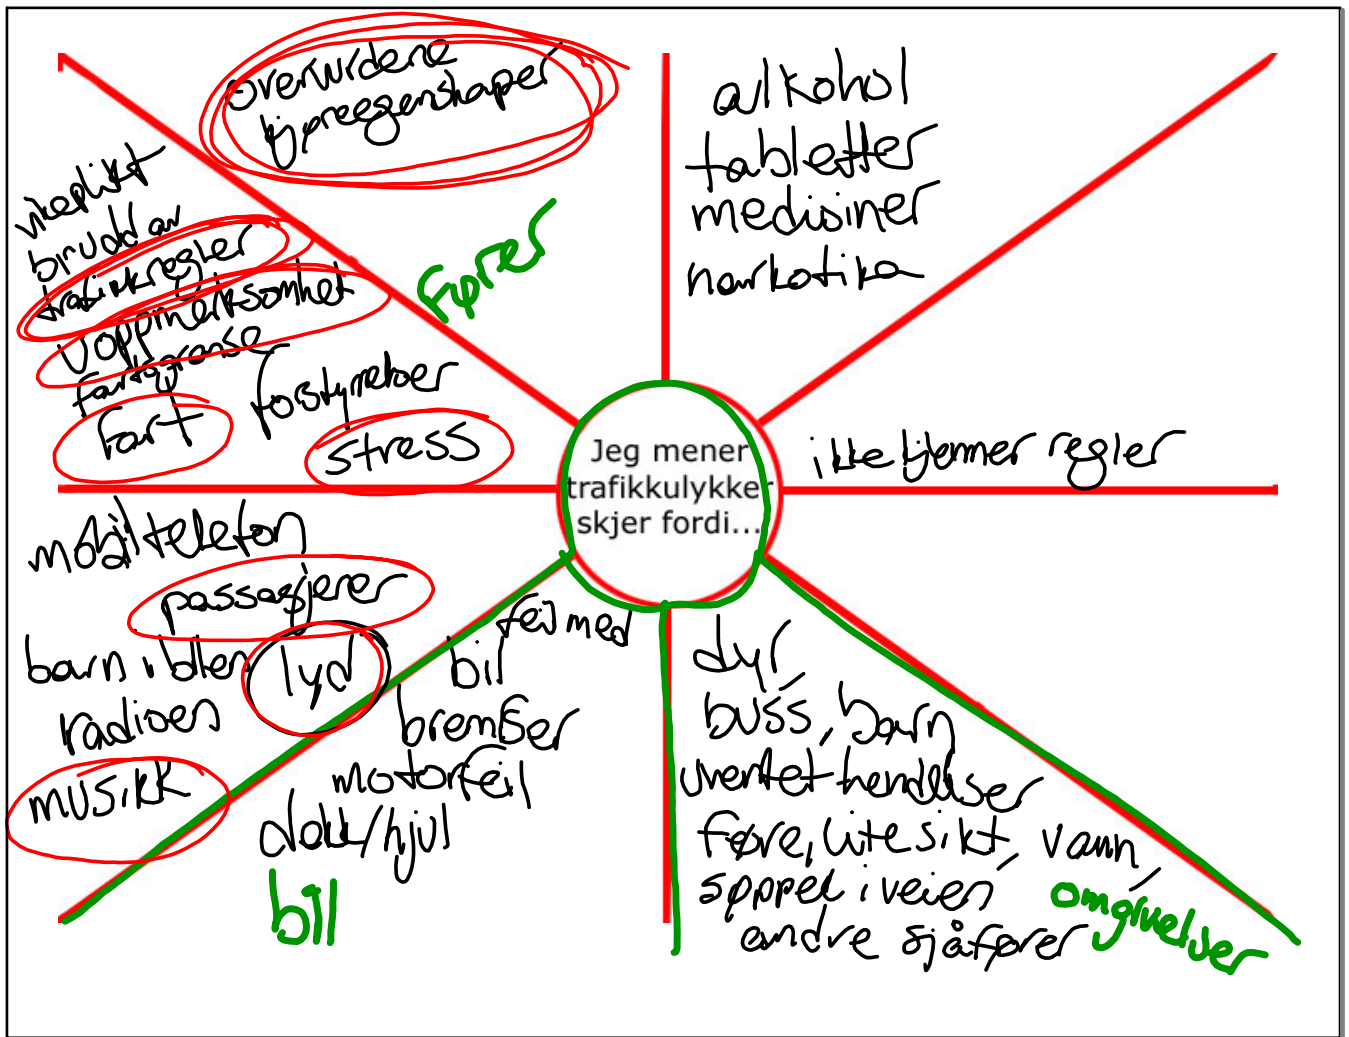 overvurdene
kjøreegenskaper
Fører
vikeplikt
brudd av
trafikkregler
Uoppmerksomhet
fartsgrense
fart
forstyrrelser
stress
alkohol
tabletter
medisiner
narkotika
ikke kjenner regler
Jeg mener
trafikkulykker
skjer fordi...
mobiltelefon
passasjerer
barn i bilen
lyd
radioen
musikk
feil med
bil
bremser
motorfeil
dekk/hjul
bil
dyr,
buss, barn
uventet hendelser
Føre, lite sikt, vann,
søppel i veien
andre sjåfører
omgivelser